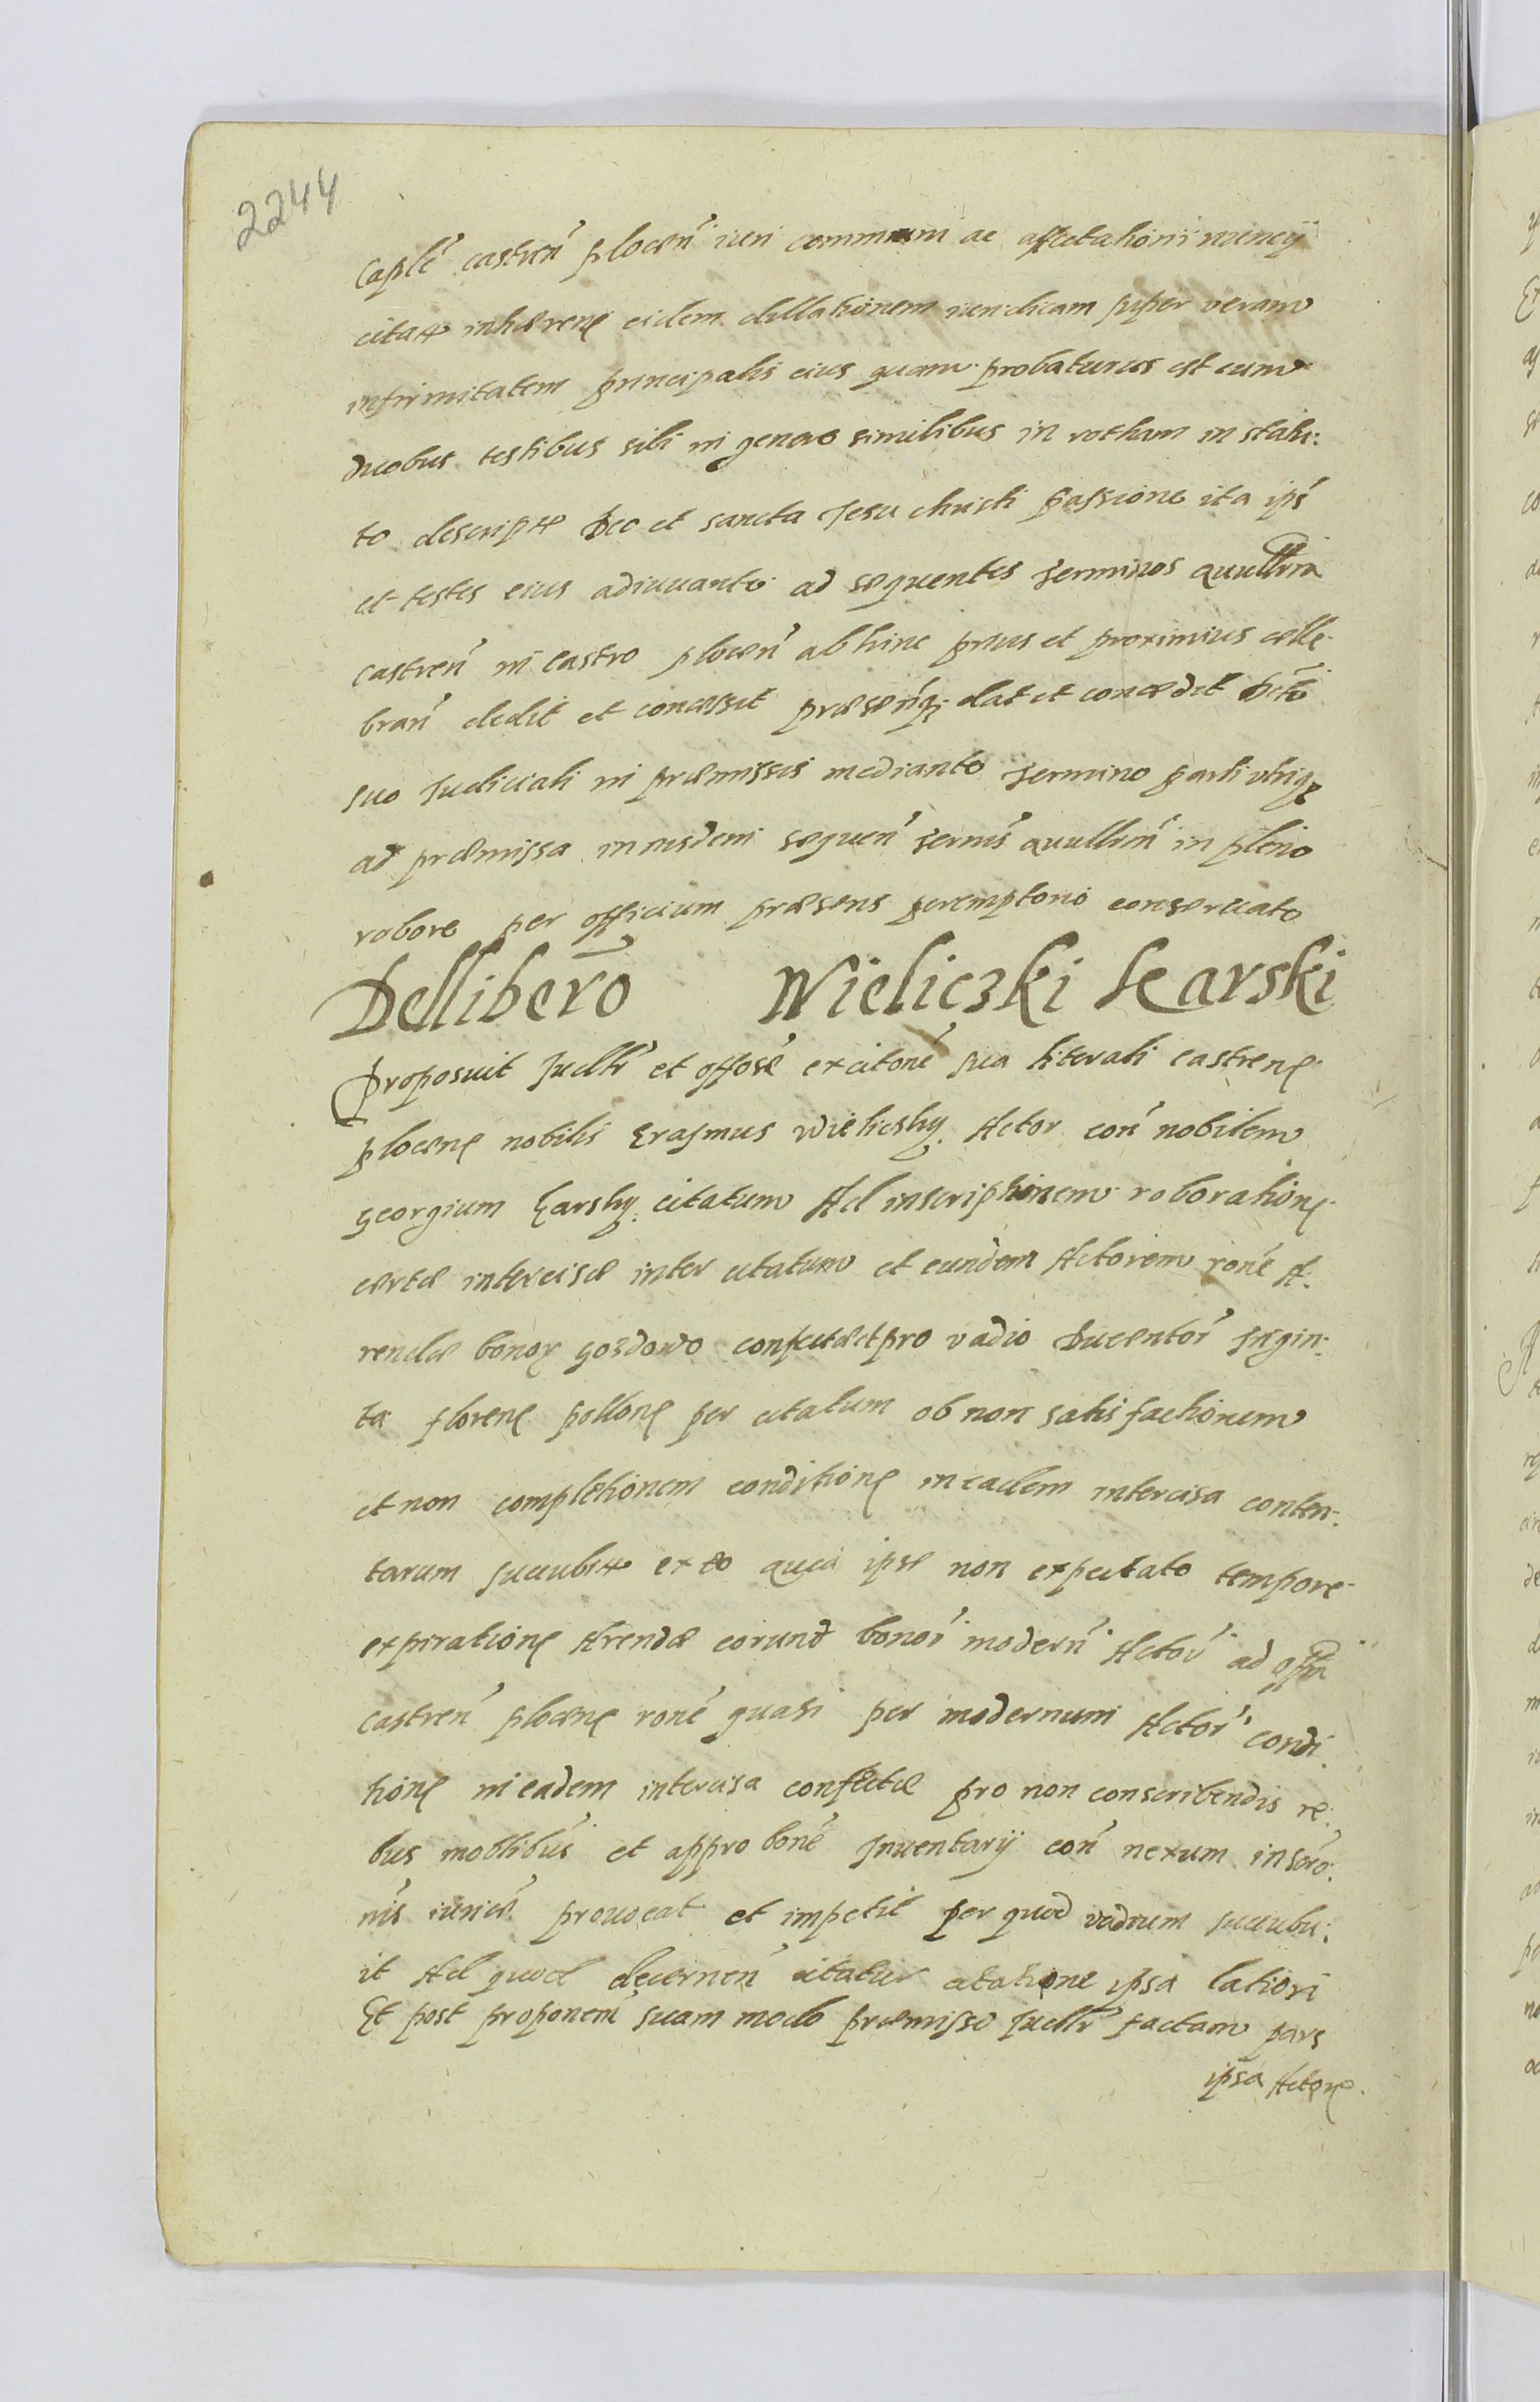 2244
Caplē castreń plocen̄ iuri communi ac affectationi nuncij
citati inhærenȩ eidem dillationem iuridicam super veram
infirmitatem principalis eius quam probaturus est cum
duobus testibus sibi in genere similibus in rotham in statu:
to descriptæ Deo et sancta Jesu christi passione ita ipś
et testes eius adiuuante ad sequentes terminos quullrīa
castreń in castro plocen̄ abhinc prius et proximius cælle
brań dedit et concessit præsenq̨ dat et concedit Dcto
suo Judiciali in præmissis mediante termino parti vtriq̨
ad præmissa in eisdem sequeń termīs quullrīn in pleno
robore per officium præsens peremptorio conseruato
Dellibero Wieliczki Karski
Proposuit Judlr et offosē ex citone sua literali castrenȩ
plocenȩ nobilis Erasmus Wielicsky Actor con̄ nobilem
georgium Karsky citatum Ad inscriptionem roborationȩ
certæ intercisæ inter citatum et eundem Actorem ronē A:
rendæ bonoꝝ gozdowo confectæ et pro vadio Ducentor̄ trigin:
ta florenȩ pollonȩ per citatum ob non satisfactionem
et non completionem conditionȩ in eadem intercisa conten:
tarum succubito ex eo quia ipse non expectato tempore
expirationȩ Arendæ eorund bonor̄ modern̄ Actor̄ ad offm
castreń plocenȩ ronē quasi per modernum Actor̄ condi
tionȩ in eadem intercisa confectæ pro non conscribendis re:
bus mobilibus et approbonē Inuentarij con̄ nexum inscro:
nis iuricē prouocat et impetit per quod vadium succubu:
it Ad quod decernen̄ citatur citatione ipsa latiori
Et post proponem suam modo præmisso Judlr factam pars
ipsa Actorȩ